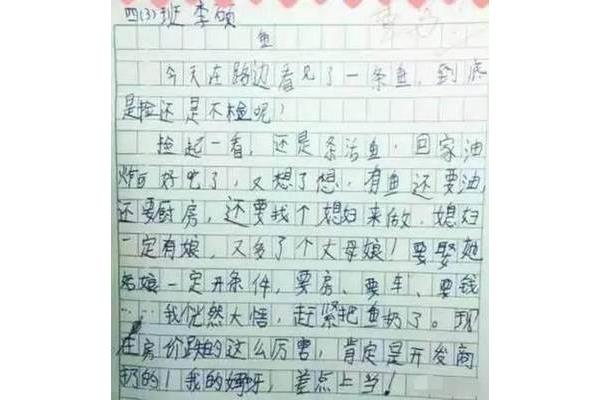 四(3)班 李硕
鱼
今天在路边看见了一条鱼，到底
是捡还是不捡呢？
捡起一看，还是条活鱼，回家油
炸可好吃了，又想了想，有鱼还要油，
还要厨房，还要找个媳妇来做，媳妇
一定有娘，又多了个丈母娘！要娶她
老娘一定开条件，要房、要车、要钱
……我恍然大悟，赶紧把鱼扔了。现
在房价跌的这么厉害，肯定是开发商
扔的！我的妈呀，差点上当！